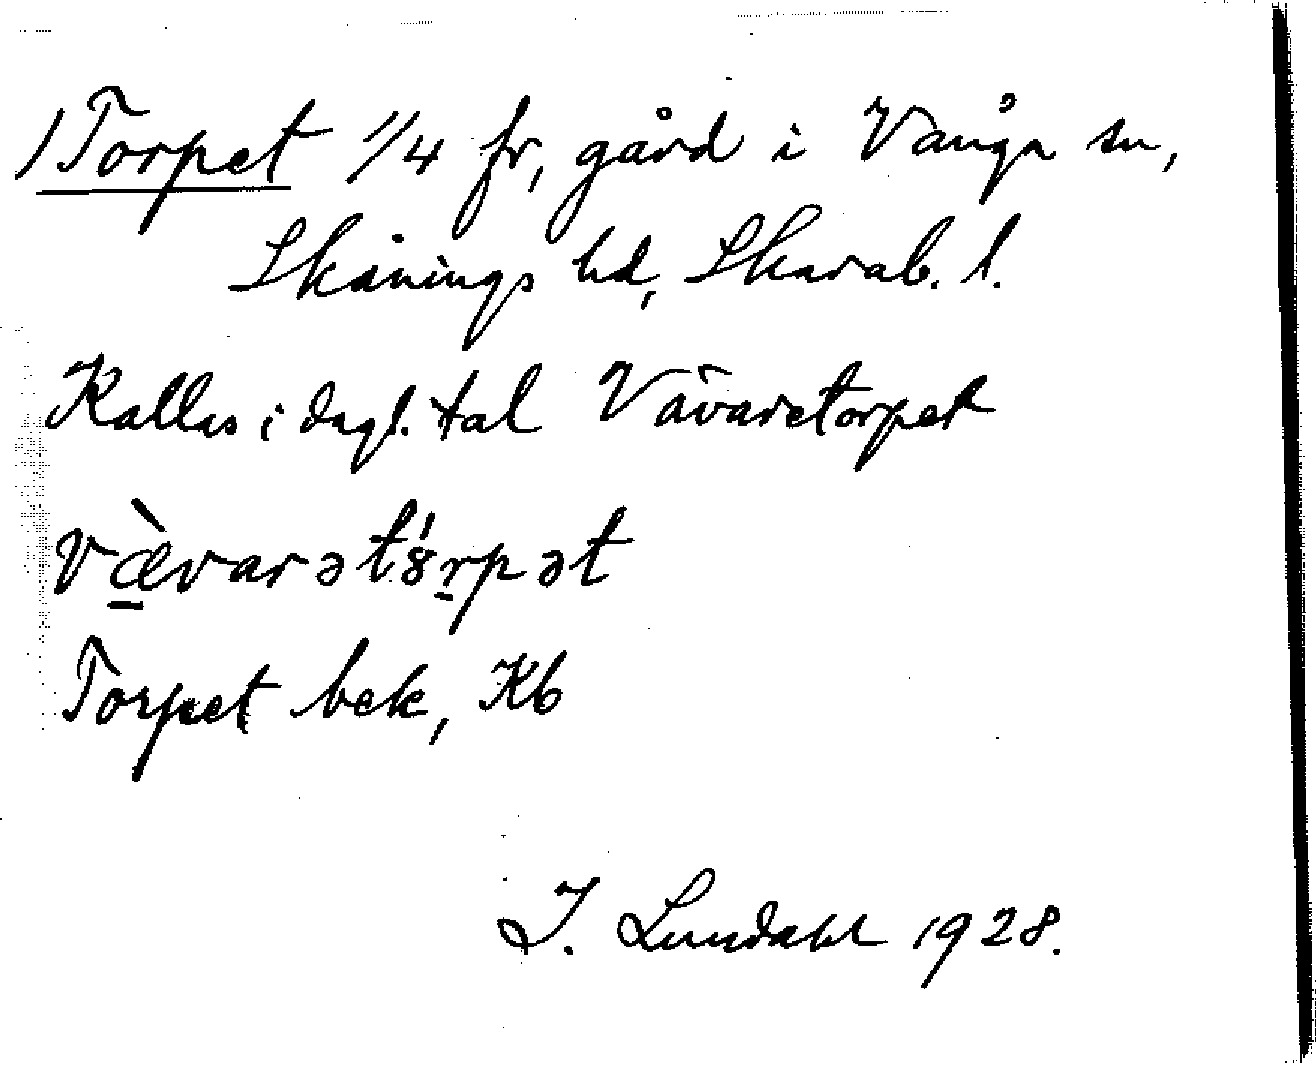 1) Torpet 1/4 fr, gård i Vånga sn,
Skånings hd, Skarab. l.
Kallas i dagl. tal Vävaretorpet
væ̀varətȣ́rpət
Torpet bek, Kb
I. Lundahl 1928.